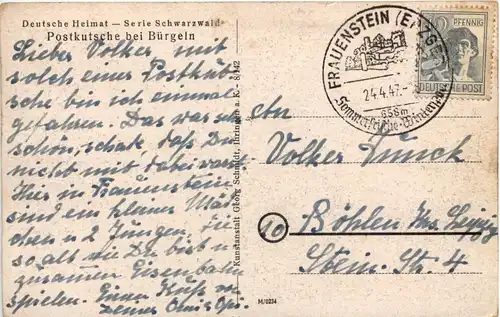 Deutsche Heimat — Serie Schwarzwald
Postkutsche bei Bürgeln
Lieber Volker, mit
solch einer Postkut-
sche bin ich einmal
gefahren. Das war
schön, schade, daß Du
nicht mit dabei warst.
Hier in Frauenstein
sind ein kleines Mäd-
chen u 2 Jungen, die
so alt die Du bist u
zusammen Eisenbahn
spielen. Einen Kuß v.
Deiner Omi & Opi.
Kunstanstalt Georg Schmidt, Ihringen a. K. - 8/42
M/0234
FRAUENSTEIN (ERZGEB)
24.4.47.
658m
Sommerfrische-Wintersport
PFENNIG
DEUTSCHE POST
An
Volker
10 Böhlen Krs. Leipzig
Stein-Str. 4